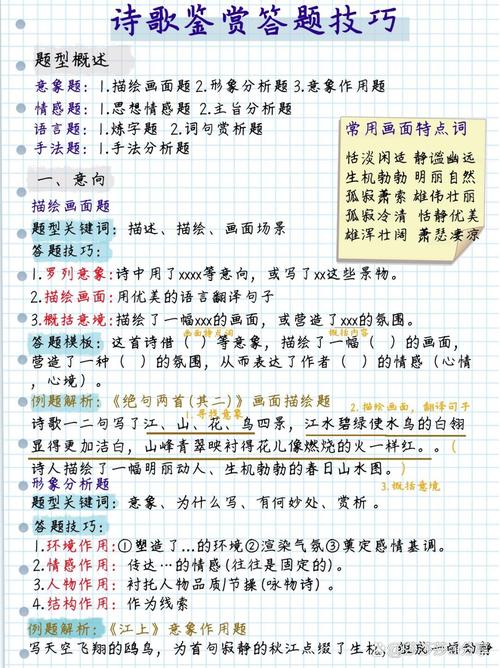 诗歌鉴赏答题技巧
题型概述
意象题：1.描绘画面题2.形象分析题3.意象作用题
情感题：1.思想情感题 2.主旨分析题
语言题：1.炼字题 2.词句赏析题
手法题：1.手法分析题
常用画面特点词
恬淡闲适 静谧幽远
生机勃勃 明丽自然
孤寂萧索 雄伟壮丽
孤寂冷清 恬静优美
雄浑壮阔 萧瑟凄凉
一、意向
描绘画面题
题型关键词：描述、描绘、画面场景
答题技巧：
1.罗列意象:诗中用了xxxx等意向，或写了xx这些景物。
2.描绘画面:用优美的语言翻译句子
3.概括意境:描绘了一幅xxx的画面，或营造了xxx的氛围。
画面特点词
概括内容
答题模板：这首诗借（ ）等意象，描绘了一幅（ ）的画面，
营造了一种（ ）的氛围，从而表达了作者（ ）的情感（心情
，心境）。
例题解析：《绝句两首(其二)》画面描绘题
1.寻找意象
2.描绘画面，翻译句子
诗歌一二句写了江、山、花、鸟四景，江水碧绿使水鸟的白翎
显得更加洁白，山峰青翠映衬得花儿像燃烧的火一样红。。（
诗人描绘了一幅明丽动人、生机勃勃的春日山水图。）
3.概括意境
形象分析题
题型关键词：意象、为什么写、有何妙处、赏析 。
答题技巧：
1.环境作用:①塑造了...的环境②渲染气氛③奠定感情基调。
2.情感作用: 传达…的情感(往往是固定的)。
3.人物作用: 衬托人物品质/节操(咏物诗)。
4.结构作用: 作为线索
例题解析：《江上》意象作用题
写天空飞翔的鸥鸟，为首句寂静的秋江点缀了生机，